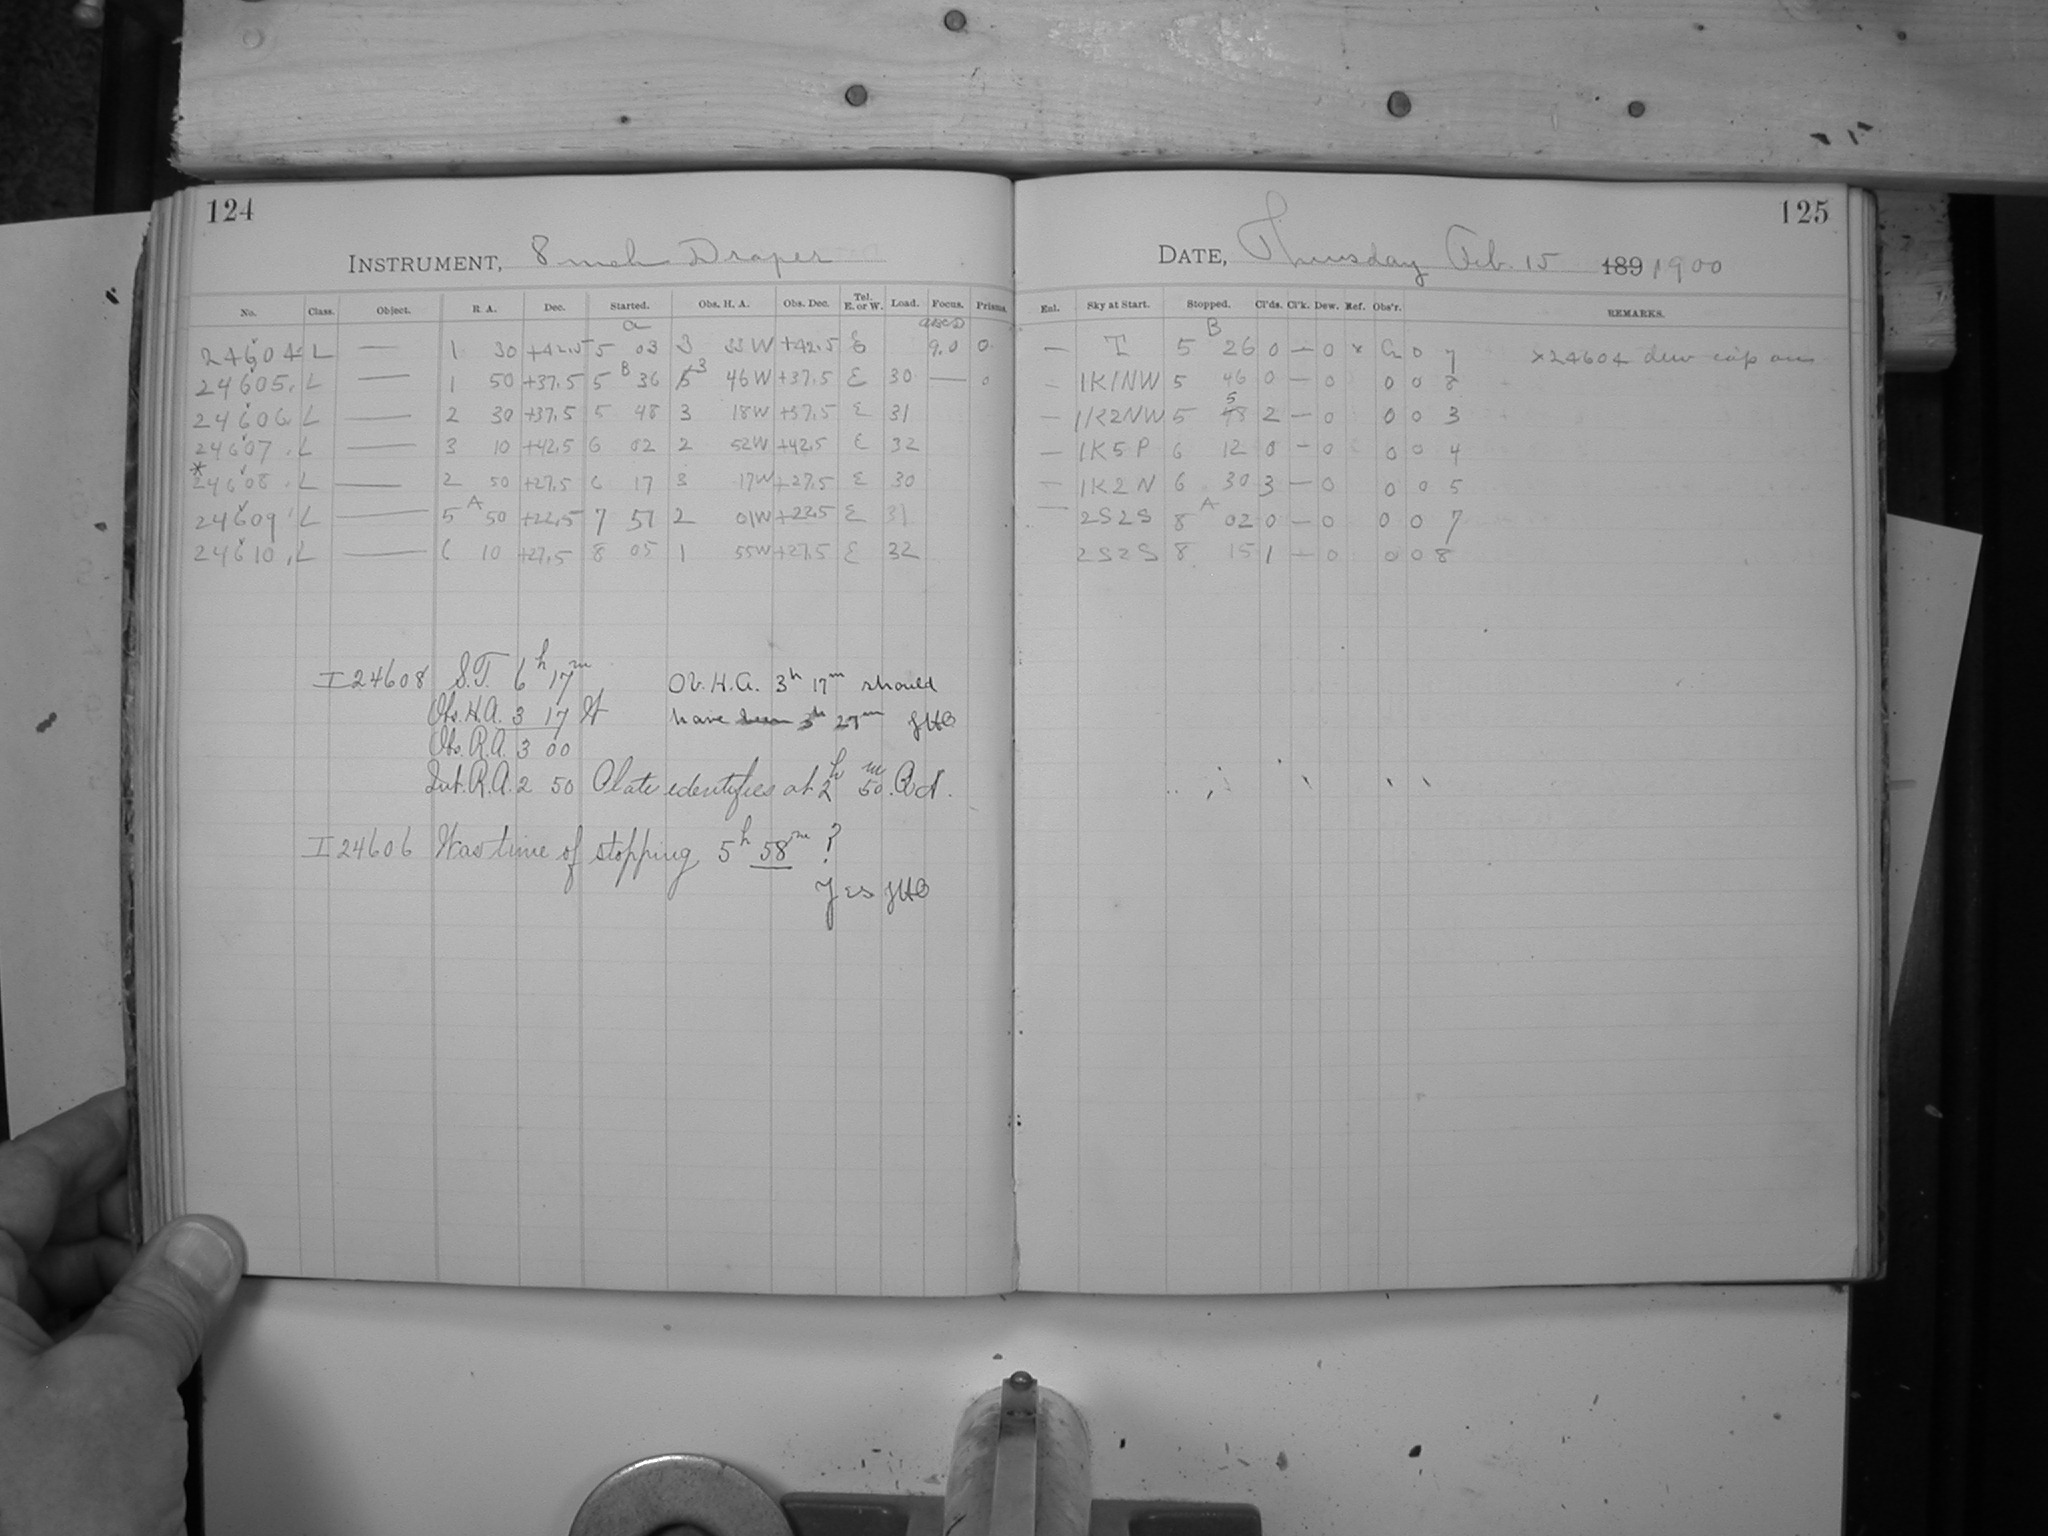 124
125
INSTRUMENT, 8 inch Draper
DATE, Thursday Feb. 15 189 1900
No. Class. Object. R. A. Dec. Started. Obs. H. A. Obs. Dec. Tel. E. or W. Load. Focus. Prisms. Enl. Sky at Start. Stopped. Cl'ds. Cl'k. Dew. Ref. Obs'r. REMARKS.
a B
24604 L — 1 30 +42.5 5 03 3 33W +42.5 E 9.0 0 — T 5 26 0 — 0 x 0 7 x24604 dew cap on
24605. L — 1 50 +37.5 5 B 36 5 3 46W +37.5 E 30 — 0 - 1K1NW 5 46 0 — 0 0 0 8
24606 L — 2 30 +37.5 5 48 3 18W +37.5 E 31 — 1K2NW 5 48 5 2 — 0 0 0 3
24607. L — 3 10 +42.5 6 02 2 52W +42.5 E 32 — 1K5P 6 12 0 — 0 0 0 4
* 24608. L — 2 50 +27.5 6 17 3 17W +27.5 E 30 — 1K2N 6 30 3 — 0 0 0 5
24609 L — 5 A 50 +22.5 7 51 2 01W +22.5 E 31 — 2S2S 8 A 02 0 — 0 0 0 7
24610. L — 6 10 +27.5 8 05 1 55W +27.5 E 32 2S2S 8 15 1 — 0 0 0 8
I 24608 S.T. 6h 17m Ob. H.A. 3h 17m should
Obs. H.A. 3 17 W have been 3h 27m JHB
Obs. R.A. 3 00
Int. R.A. 2 50 Plate identifies at 2h 50m.
I 24606 Was time of stopping 5h 58m ?
Yes JHB